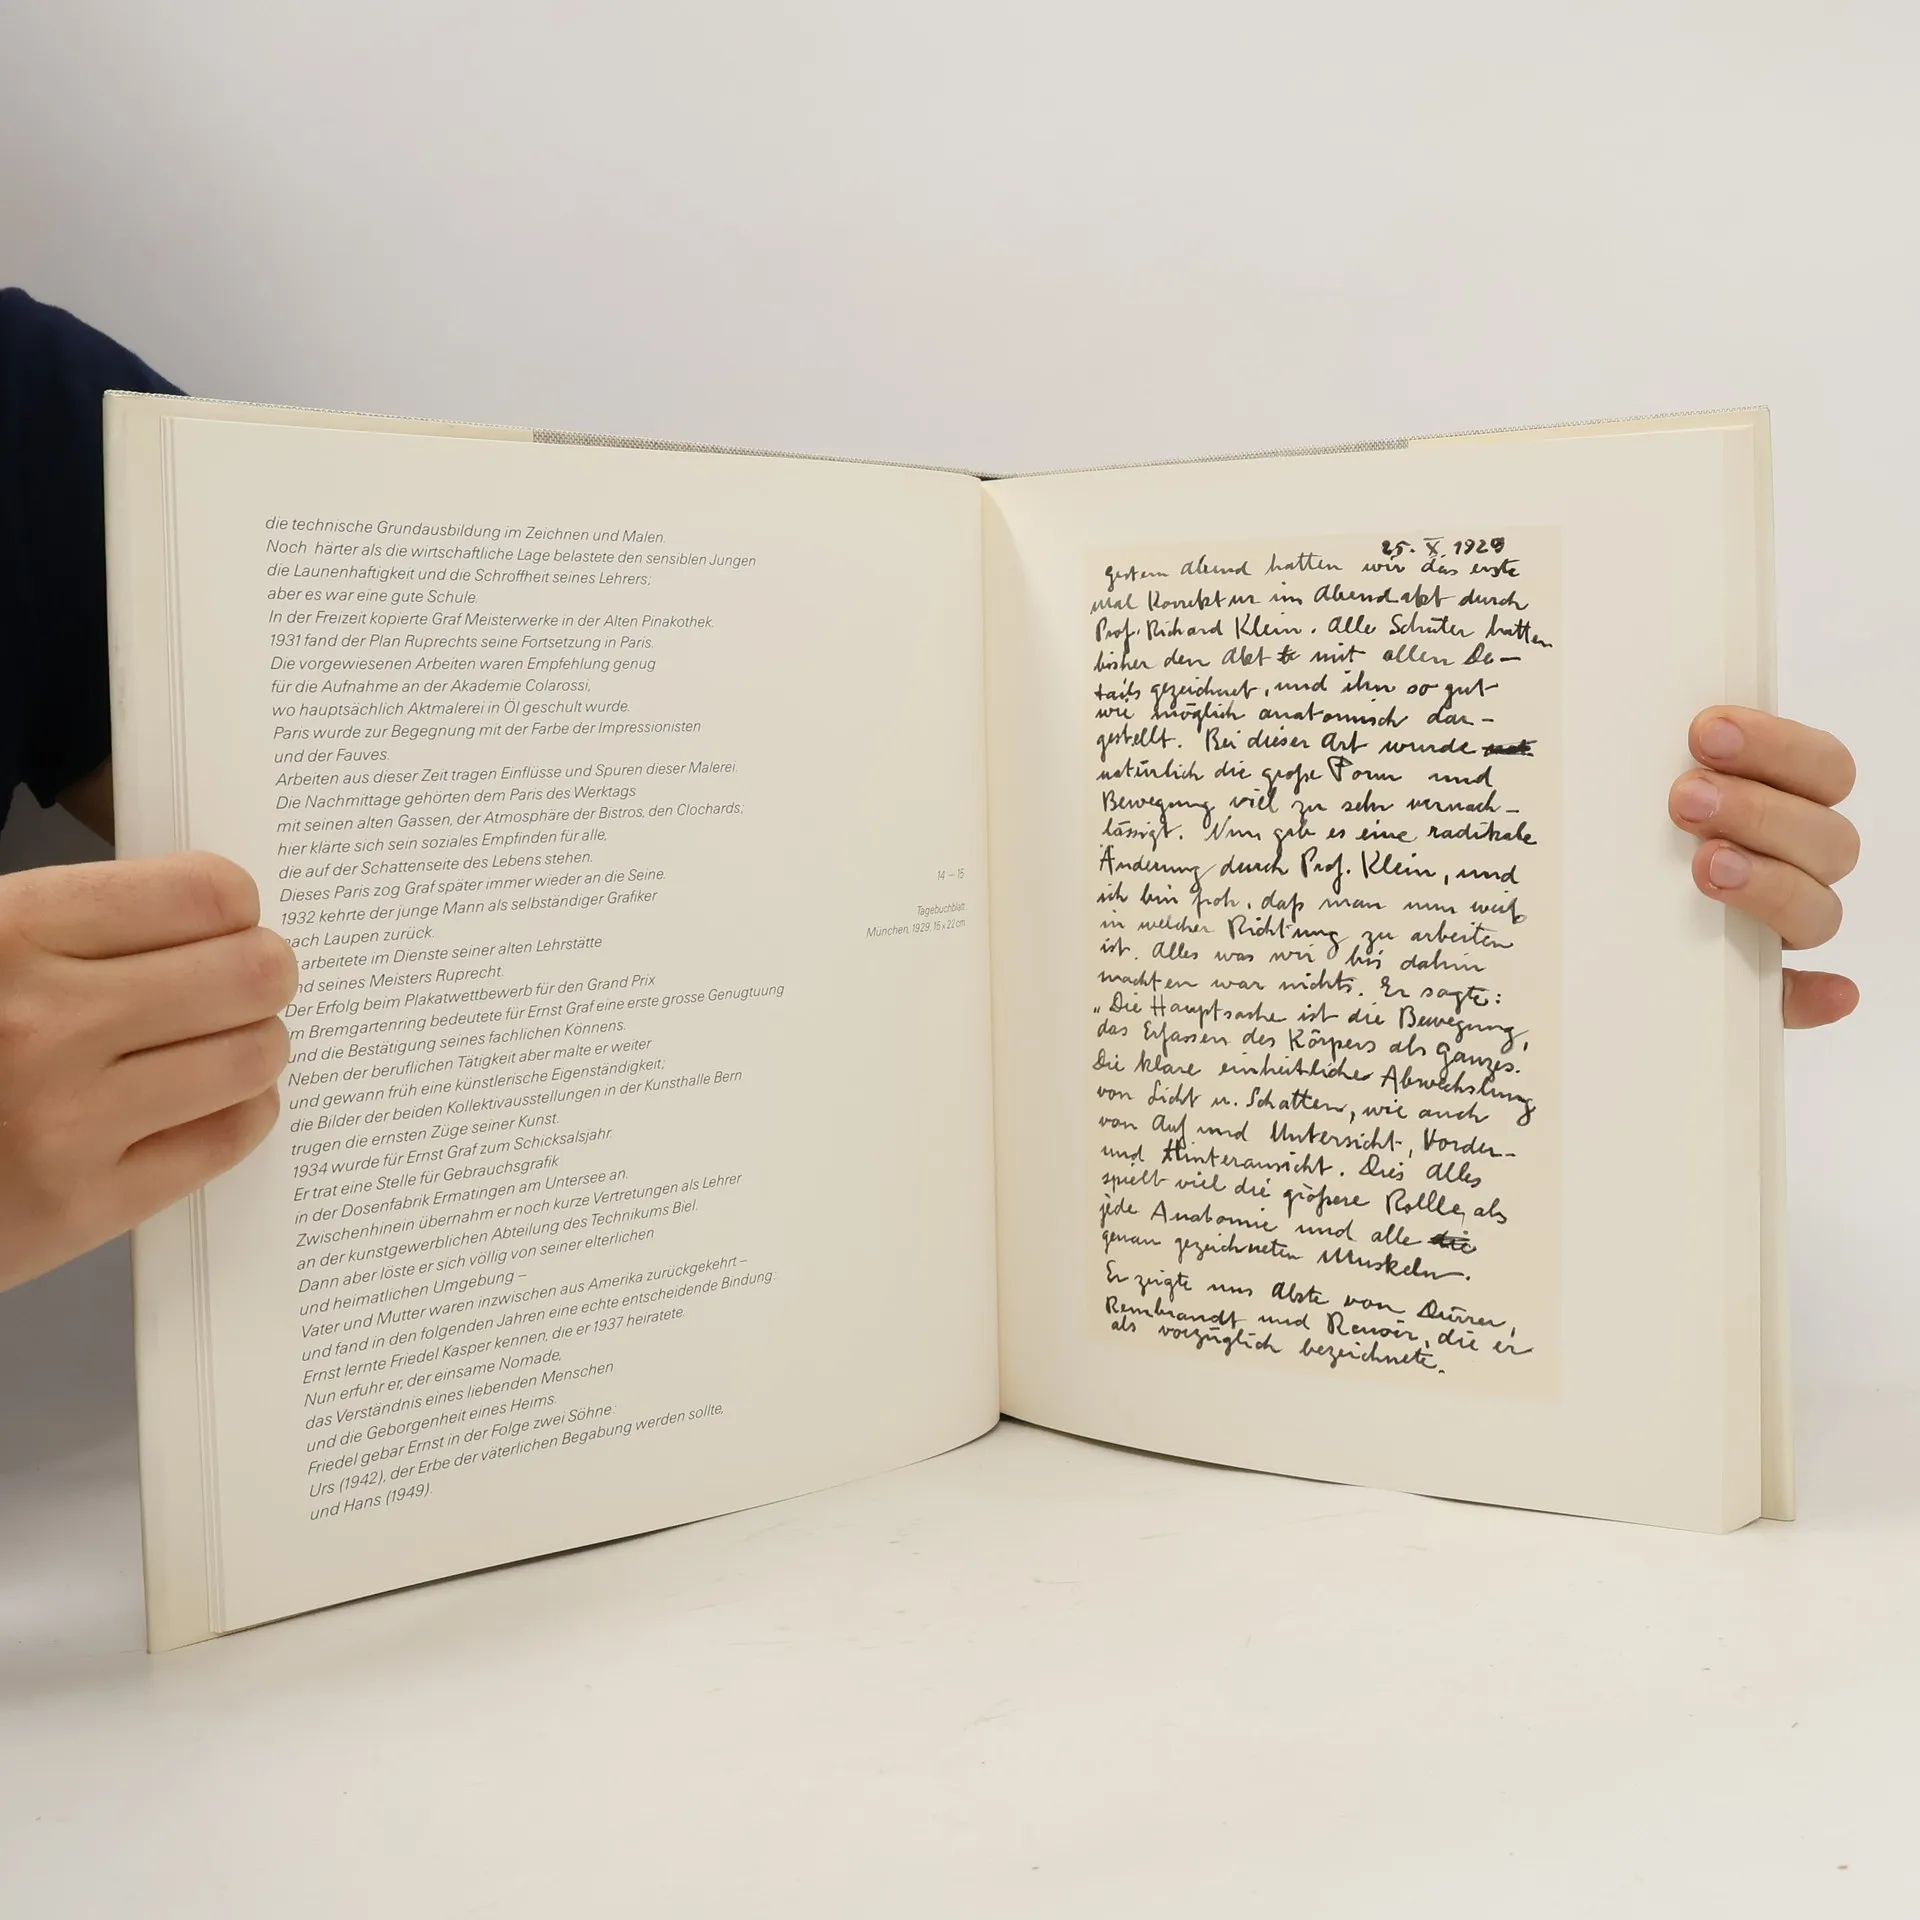 die technische Grundausbildung im Zeichnen und Malen.
Noch härter als die wirtschaftliche Lage belastete den sensiblen Jungen
die Launenhaftigkeit und die Schroffheit seines Lehrers;
aber es war eine gute Schule.
In der Freizeit kopierte Graf Meisterwerke in der Alten Pinakothek.
1931 fand der Plan Ruprechts seine Fortsetzung in Paris.
Die vorgewiesenen Arbeiten waren Empfehlung genug
für die Aufnahme an der Akademie Colarossi,
wo hauptsächlich Aktmalerei in Öl geschult wurde.
Paris wurde zur Begegnung mit der Farbe der Impressionisten
und der Fauves.
Arbeiten aus dieser Zeit tragen Einflüsse und Spuren dieser Malerei.
Die Nachmittage gehörten dem Paris des Werktags
mit seinen alten Gassen, der Atmosphäre der Bistros, den Clochards;
hier klärte sich sein soziales Empfinden für alle,
die auf der Schattenseite des Lebens stehen.
Dieses Paris zog Graf später immer wieder an die Seine.
1932 kehrte der junge Mann als selbständiger Grafiker
nach Laupen zurück.
arbeitete im Dienste seiner alten Lehrstätte
nd seines Meisters Ruprecht.
Der Erfolg beim Plakatwettbewerb für den Grand Prix
im Bremgartenring bedeutete für Ernst Graf eine erste grosse Genugtuung
und die Bestätigung seines fachlichen Könnens.
Neben der beruflichen Tätigkeit aber malte er weiter
und gewann früh eine künstlerische Eigenständigkeit;
die Bilder der beiden Kollektivausstellungen in der Kunsthalle Bern
trugen die ernsten Züge seiner Kunst.
1934 wurde für Ernst Graf zum Schicksalsjahr.
Er trat eine Stelle für Gebrauchsgrafik
in der Dosenfabrik Ermatingen am Untersee an.
Zwischenhinein übernahm er noch kurze Vertretungen als Lehrer
an der kunstgewerblichen Abteilung des Technikums Biel.
Dann aber löste er sich völlig von seiner elterlichen
und heimatlichen Umgebung –
Vater und Mutter waren inzwischen aus Amerika zurückgekehrt –
und fand in den folgenden Jahren eine echte entscheidende Bindung:
Ernst lernte Friedel Kasper kennen, die er 1937 heiratete.
Nun erfuhr er, der einsame Nomade,
das Verständnis eines liebenden Menschen
und die Geborgenheit eines Heims.
Friedel gebar Ernst in der Folge zwei Söhne:
Urs (1942), der Erbe der väterlichen Begabung werden sollte,
und Hans (1949).
14 – 15
Tagebuchblatt
München, 1929, 15 x 22 cm
25. X. 1929
Gestern Abend hatten wir das erste
mal Korrektur im Abendakt durch
Prof. Richard Klein. Alle Schüler hatten
bisher den Akt mit allen De–
tails gezeichnet, und ihn so gut
wie möglich anatomisch dar–
gestellt. Bei dieser Art wurde
natürlich die große Form und
Bewegung viel zu sehr vernach–
lässigt. Nun gab es eine radikale
Änderung durch Prof. Klein, und
ich bin froh, daß man nun weiß
in welcher Richtung zu arbeiten
ist. Alles was wir bis dahin
machten war nichts. Er sagte:
„Die Hauptsache ist die Bewegung,
das Erfassen des Körpers als Ganzes.
Die klare einheitliche Abwechslung
von Licht u. Schatten, wie auch
von Auf und Untersicht, Vorder–
und Hinteransicht. Dies alles
spielt viel die größere Rolle, als
jede Anatomie und alle die
genau gezeichneten Muskeln.
Er zeigte uns Akte von Dürrer,
Rembrandt und Renoir, die er
als vorzüglich bezeichnete.